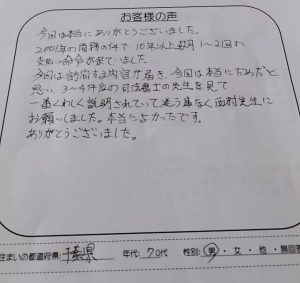 お客様の声
今回は本当にありがとうございました。
2001年の債務の件で 10年以上毎月 1〜2回の
支払い命令が来ていました
今回は訪問する内容が届き、今回は本当にだめだと
思い 3〜4件位の司法書士の先生を見て
一番くわしく説明されていて迷う事なく西村先生に
お願いしました。本当によかったです。
ありがとうございました。
住まいの都道府県: 千葉県 年代: 70代 性別: 男・女・他・無回答